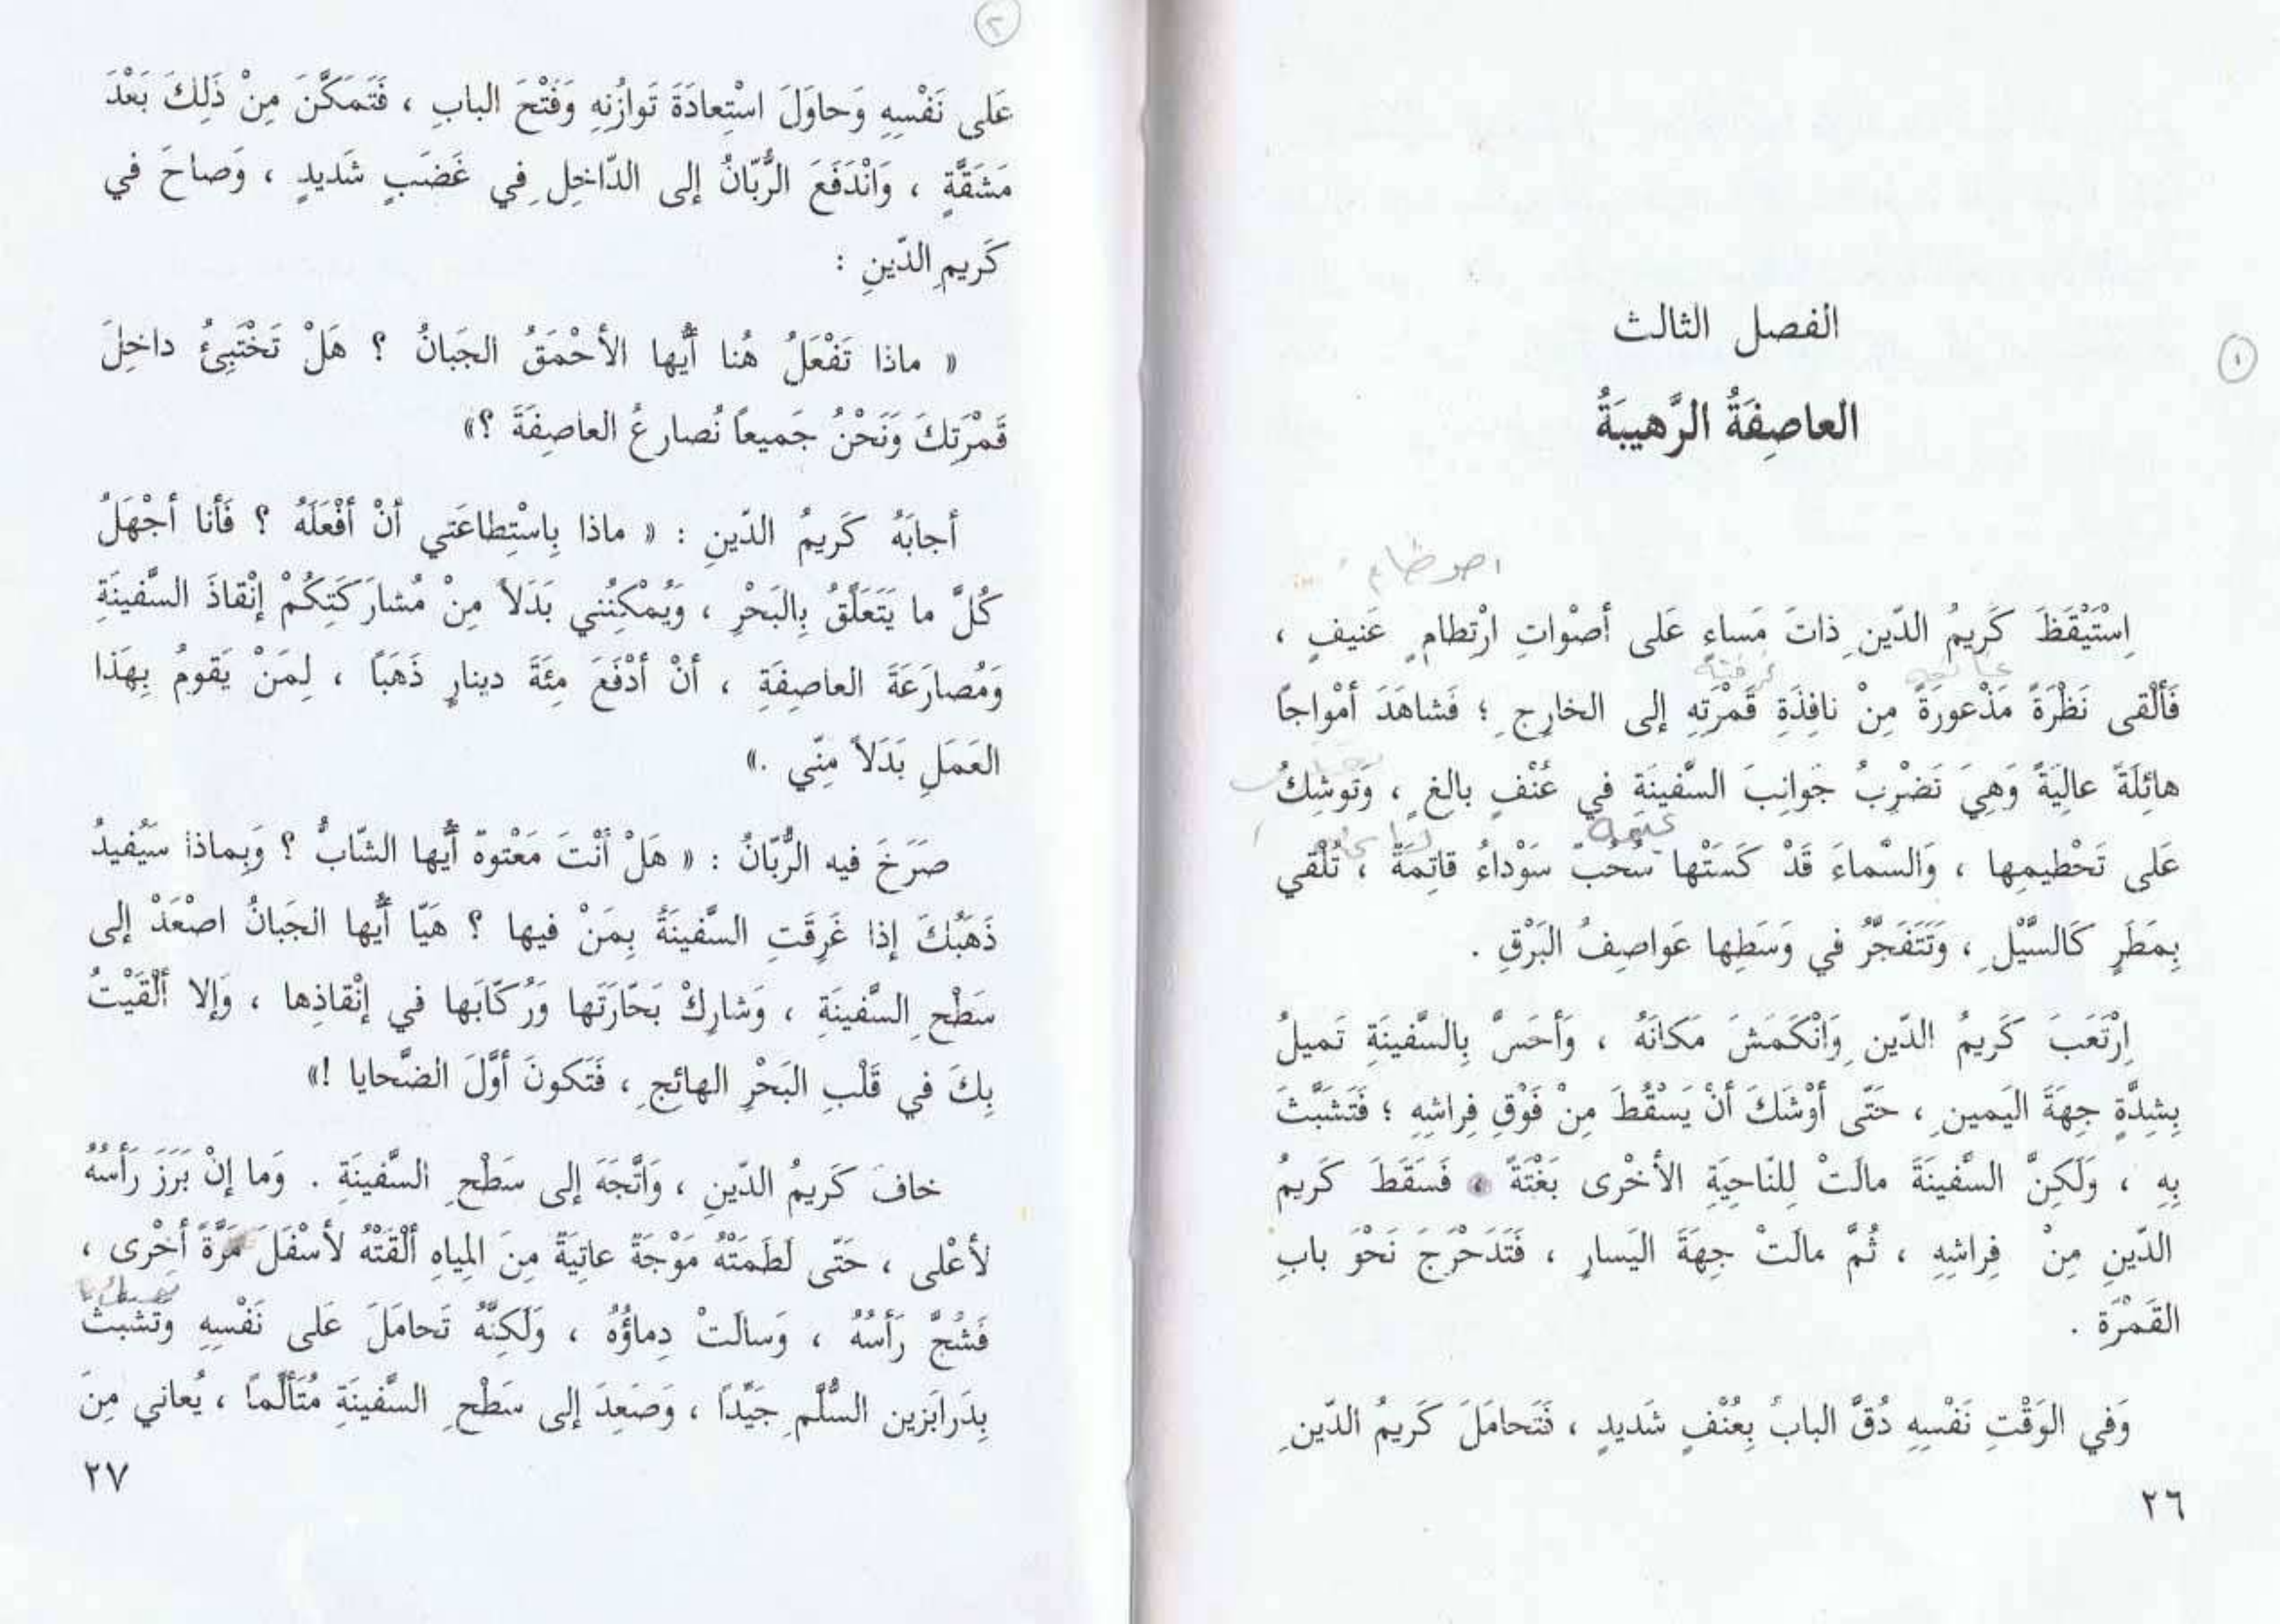 ١
الفصل الثالث
العاصِفَةُ الرَّهيبَةُ
اصوظام
اِسْتَيْقَظَ كَريمُ الدّينِ ذاتَ مَساءٍ عَلى أصْواتِ ارْتِطامٍ عَنيفٍ ،
فَألْقى نَظْرَةً مَذْعورَةً مِنْ نافِذَةِ قَمْرَتِهِ إلى الخارِجِ ؛ فَشاهَدَ أمْواجاً
هائِلَةً عالِيَةً وَهِيَ تَضْرِبُ جَوانِبَ السَّفينَةِ في عُنْفٍ بالِغٍ ، وَتوشِكُ
عَلى تَحْطيمِها ، وَالسَّماءَ قَدْ كَسَتْها سُحُبٌ سَوْداءُ قاتِمَةٌ ، تُلْقي
بِمَطَرٍ كَالسَّيْلِ ، وَتَتَفَجَّرُ في وَسَطِها عَواصِفُ البَرْقِ .
اِرْتَعَبَ كَريمُ الدّينِ وَانْكَمَشَ مَكانَهُ ، وَأحَسَّ بِالسَّفينَةِ تَميلُ
بِشِدَّةٍ جِهَةَ اليَمينِ ، حَتّى أوْشَكَ أنْ يَسْقُطَ مِنْ فَوْقِ فِراشِهِ ؛ فَتَشَبَّثَ
بِهِ ، وَلَكِنَّ السَّفينَةَ مالَتْ لِلنّاحِيَةِ الأخْرى بَغْتَةً ، فَسَقَطَ كَريمُ
الدّينِ مِنْ فِراشِهِ ، ثُمَّ مالَتْ جِهَةَ اليَسارِ ، فَتَدَحْرَجَ نَحْوَ بابِ
القَمْرَةِ .
وَفي الوَقْتِ نَفْسِهِ دُقَّ البابُ بِعُنْفٍ شَديدٍ ، فَتَحامَلَ كَريمُ الدّينِ
٢٦
٢
عَلى نَفْسِهِ وَحاوَلَ اسْتِعادَةَ تَوازُنِهِ وَفَتْحَ البابِ ، فَتَمَكَّنَ مِنْ ذَلِكَ بَعْدَ
مَشَقَّةٍ ، وَانْدَفَعَ الرُّبّانُ إلى الدّاخِلِ في غَضَبٍ شَديدٍ ، وَصاحَ في
كَريمِ الدّينِ :
« ماذا تَفْعَلُ هُنا أيُّها الأحْمَقُ الجَبانُ ؟ هَلْ تَخْتَبِئُ داخِلَ
قَمْرَتِكَ وَنَحْنُ جَميعاً نُصارِعُ العاصِفَةَ ؟»
أجابَهُ كَريمُ الدّينِ : « ماذا بِاسْتِطاعَتي أنْ أفْعَلَهُ ؟ فَأنا أجْهَلُ
كُلَّ ما يَتَعَلَّقُ بِالبَحْرِ ، وَيُمْكِنُني بَدَلاً مِنْ مُشارَكَتِكُمْ إنْقاذَ السَّفينَةِ
وَمُصارَعَةَ العاصِفَةِ ، أنْ أدْفَعَ مِئَةَ دينارٍ ذَهَباً ، لِمَنْ يَقومُ بِهَذا
العَمَلِ بَدَلاً مِنّي .»
صَرَخَ فيه الرُّبّانُ : « هَلْ أنْتَ مَعْتوهٌ أيُّها الشّابُّ ؟ وَبِماذا سَيُفيدُ
ذَهَبُكَ إذا غَرِقَتِ السَّفينَةُ بِمَنْ فيها ؟ هَيّا أيُّها الجَبانُ اصْعَدْ إلى
سَطْحِ السَّفينَةِ ، وَشارِكْ بَحّارَتَها وَرُكّابَها في إنْقاذِها ، وَإلا ألْقَيْتُ
بِكَ في قَلْبِ البَحْرِ الهائِجِ ، فَتَكونَ أوَّلَ الضَّحايا !»
خافَ كَريمُ الدّينِ ، وَاتَّجَهَ إلى سَطْحِ السَّفينَةِ . وَما إنْ بَرَزَ رَأسُهُ
لأعْلى ، حَتّى لَطَمَتْهُ مَوْجَةٌ عاتِيَةٌ مِنَ المِياهِ ألْقَتْهُ لأسْفَلَ مَرَّةً أخْرى ،
فَشُجَّ رَأسُهُ ، وَسالَتْ دِماؤُهُ ، وَلَكِنَّهُ تَحامَلَ عَلى نَفْسِهِ وَتَشَبَّثَ
بِدَرابَزينِ السُّلَّمِ جَيِّداً ، وَصَعِدَ إلى سَطْحِ السَّفينَةِ مُتَألِّماً ، يُعاني مِنَ
٢٧